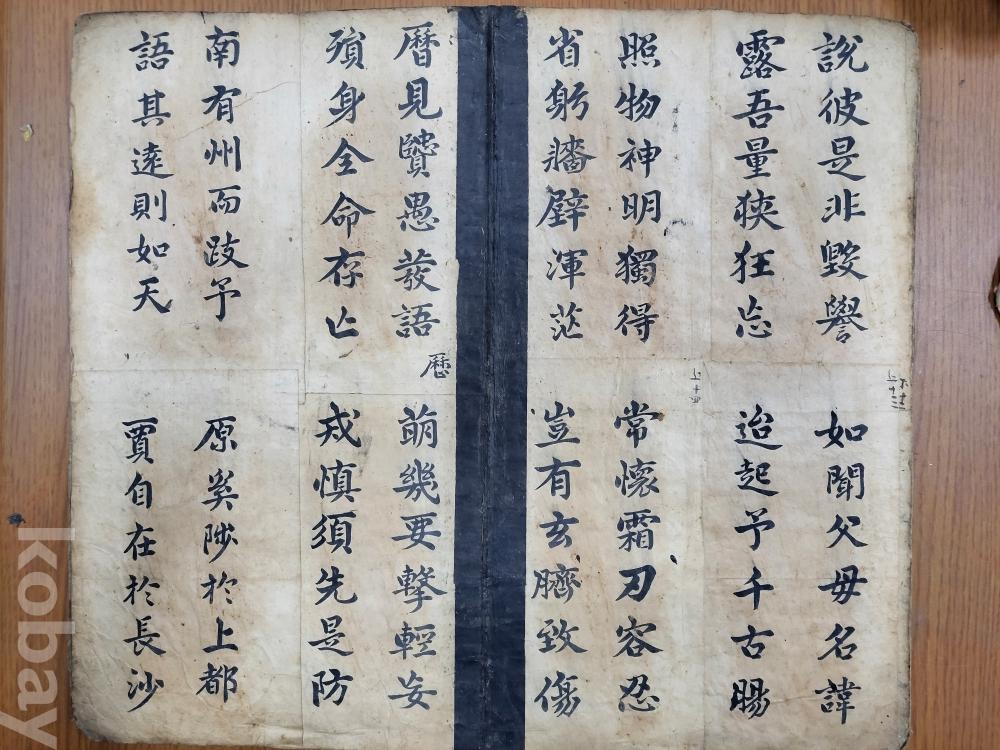 說彼是非毀譽 如聞父毋名諱
露吾量狹狂忘 迨起予千古賜
照物神明獨得 常懷霜刃容忍
省躬牆壁渾茫 豈有玄臍致傷
曆見賢愚發語 萌幾要擊輕妄
歷
殞身全命存亡 戒慎須先是防
南有州而跂予 原奚陟於上都
語其遠則如天 賈自在於長沙
上十四
kobay